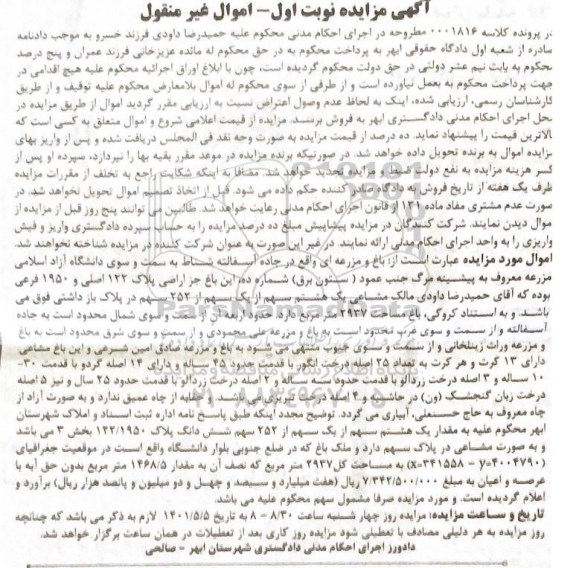 آگهی مزایده نوبت اول - اموال غیر منقول
در پرونده کلاسه ۰۰۰۱۸۱۶ مطروحه در اجرای احکام مدنی محکوم علیه حمیدرضا داودی فرزند خسرو به موجب دادنامه
صادره از شعبه اول دادگاه حقوقی ابهر به پرداخت محکوم به در حق محکوم له مائده عزیزخانی فرزند عمران و پنج درصد
محکوم به بابت نیم عشر دولتی در حق دولت محکوم گردیده است، چون با ابلاغ اوراق اجرائیه محکوم علیه هیچ اقدامی در
جهت پرداخت محکوم به بعمل نیاورده است و از طرفی از سوی محکوم له اموال بلامعارض محکوم علیه توقیف و از طریق
کارشناسان رسمی، ارزیابی شده، اینک به لحاظ عدم وصول اعتراض نسبت به ارزیابی مقرر گردید اموال از طریق مزایده در
محل اجرای احکام مدنی دادگستری ابهر به فروش برسد. مزایده از قیمت اعلامی شروع و اموال متعلق به کسی است که
بالاترین قیمت را پیشنهاد نماید. ده درصد از قیمت مزایده به صورت وجه نقد فی المجلس دریافت شده و پس از واریز بهای
مزایده اموال به برنده تحویل داده خواهد شد. در صورتیکه برنده مزایده در موعد مقرر بقیه بها را نپردازد، سپرده او پس از
کسر هزینه مزایده به نفع دولت ضبط و مزایده تجدید خواهد شد. مضافا به اینکه شکایت راجع به تخلف از مقررات مزایده
ظرف یک هفته از تاریخ فروش به دادگاه صادر کننده حکم داده می شود. قبل از اتخاذ تصمیم اموال تحویل نخواهد شد. در
صورت عدم مشتری مفاد ماده ۱۳۱ از قانون اجرای احکام مدنی رعایت خواهد شد. طالبین می توانند پنج روز قبل از مزایده از
اموال دیدن نمایند. شرکت کنندگان در مزایده پیشاپیش مبلغ ده درصد مزایده را به حساب سپرده دادگستری واریز و فیش
واریزی را به واحد اجرای احکام مدنی ارائه نمایند. در غیر این صورت به عنوان شرکت کننده در مزایده شناخته نخواهند شد.
اموال مورد مزایده عبارت است از: باغ و مزرعه ای واقع در جاده آسفالته شناط به سمت و سوی دانشگاه آزاد اسلامی
مزرعه معروف به پیشینه مرگ جنب عمود (ستون برق) شماره ده، این باغ جز اراضی پلاک ۱۲۲ اصلی و ۱۹۵۰ فرعی
بوده که آقای حمیدرضا داودی مالک مشاعی یک هشتم سهم از یک سهم از ۲۵۲ سهم در پلاک باز داشتی فوق می
باشد. و به استناد کروکی، باغ مساحت ۲۹۳۷ متر مربع دارد. حدود اربعه آن از سمت و سوی شمال محدود است به جاده
آسفالته و از سمت و سوی غرب محدود است به باغ و مزرعه علی محمودی و از سمت و سوی شرق محدود است به باغ
و مزرعه وراث زینلخانی و از سمت و سوی جنوب منتهی می شود به باغ و مزرعه صادق امین شرعی و این باغ مشاعی
دارای ۱۳ کرت و هر کرت به تعداد ۲۵ اصله درخت انگور با قدمت حدود ۴۵ سال و دارای ۱۴ اصله گردو با قدمت ۳۰-
۱۰ ساله و ۳ اصله درخت زردآلو با قدمت حدود سه ساله و ۲ اصله درخت زردآلو با قدمت حدود ۲۵ سال و نیز ۵ اصله
درخت زبان گنجشک (ون) در حاشیه و ۴ اصله درخت تبریزی می باشد. این باغ حقابه از چاه عمیق ندارد و به صورت آزاد از
چاه معروف به حاج حسنعلی، آبیاری می گردد. توضیح مجدد اینکه طبق پاسخ نامه اداره ثبت اسناد و املاک شهرستان
ابهر محکوم علیه به مقدار یک هشتم سهم از یک سهم از ۲۵۲ سهم شش دانگ پلاک ۱۲۲/۱۹۵۰ بخش ۳ می باشد
و به صورت مشاعی در پلاک سهم دارد و ملک باغ که در ضلع جنوبی بلوار دانشگاه واقع است در موقعیت جغرافیای
(x=۳۴۱۵۵۸ – y=۴۰۰۴۷۹۰) به مساحت کل ۲۹۳۷ متر مربع که نصف آن به مقدار ۱۴۶۸/۵ متر مربع بدون حق آبه با
عرصه و اعیان به مبلغ ۷/۳۴۲/۵۰۰/۰۰۰ ریال (هفت میلیارد و سیصد و چهل و دو میلیون و پانصد هزار ریال) برآورد و
اعلام گردیده است. و مورد مزایده صرفا مشمول سهم محکوم علیه می باشد.
تاریخ و ساعت مزایده: مزایده روز چهار شنبه ساعت ۸/۳۰ - ۸ به تاریخ ۱۴۰۱/۵/۵ لازم به ذکر می باشد که چنانچه
روز مزایده به هر دلیلی مصادف با تعطیلی شود مزایده روز کاری بعد از تعطیلات در همان ساعت برگزار خواهد شد.
دادورز اجرای احکام مدنی دادگستری شهرستان ابهر - صالحی